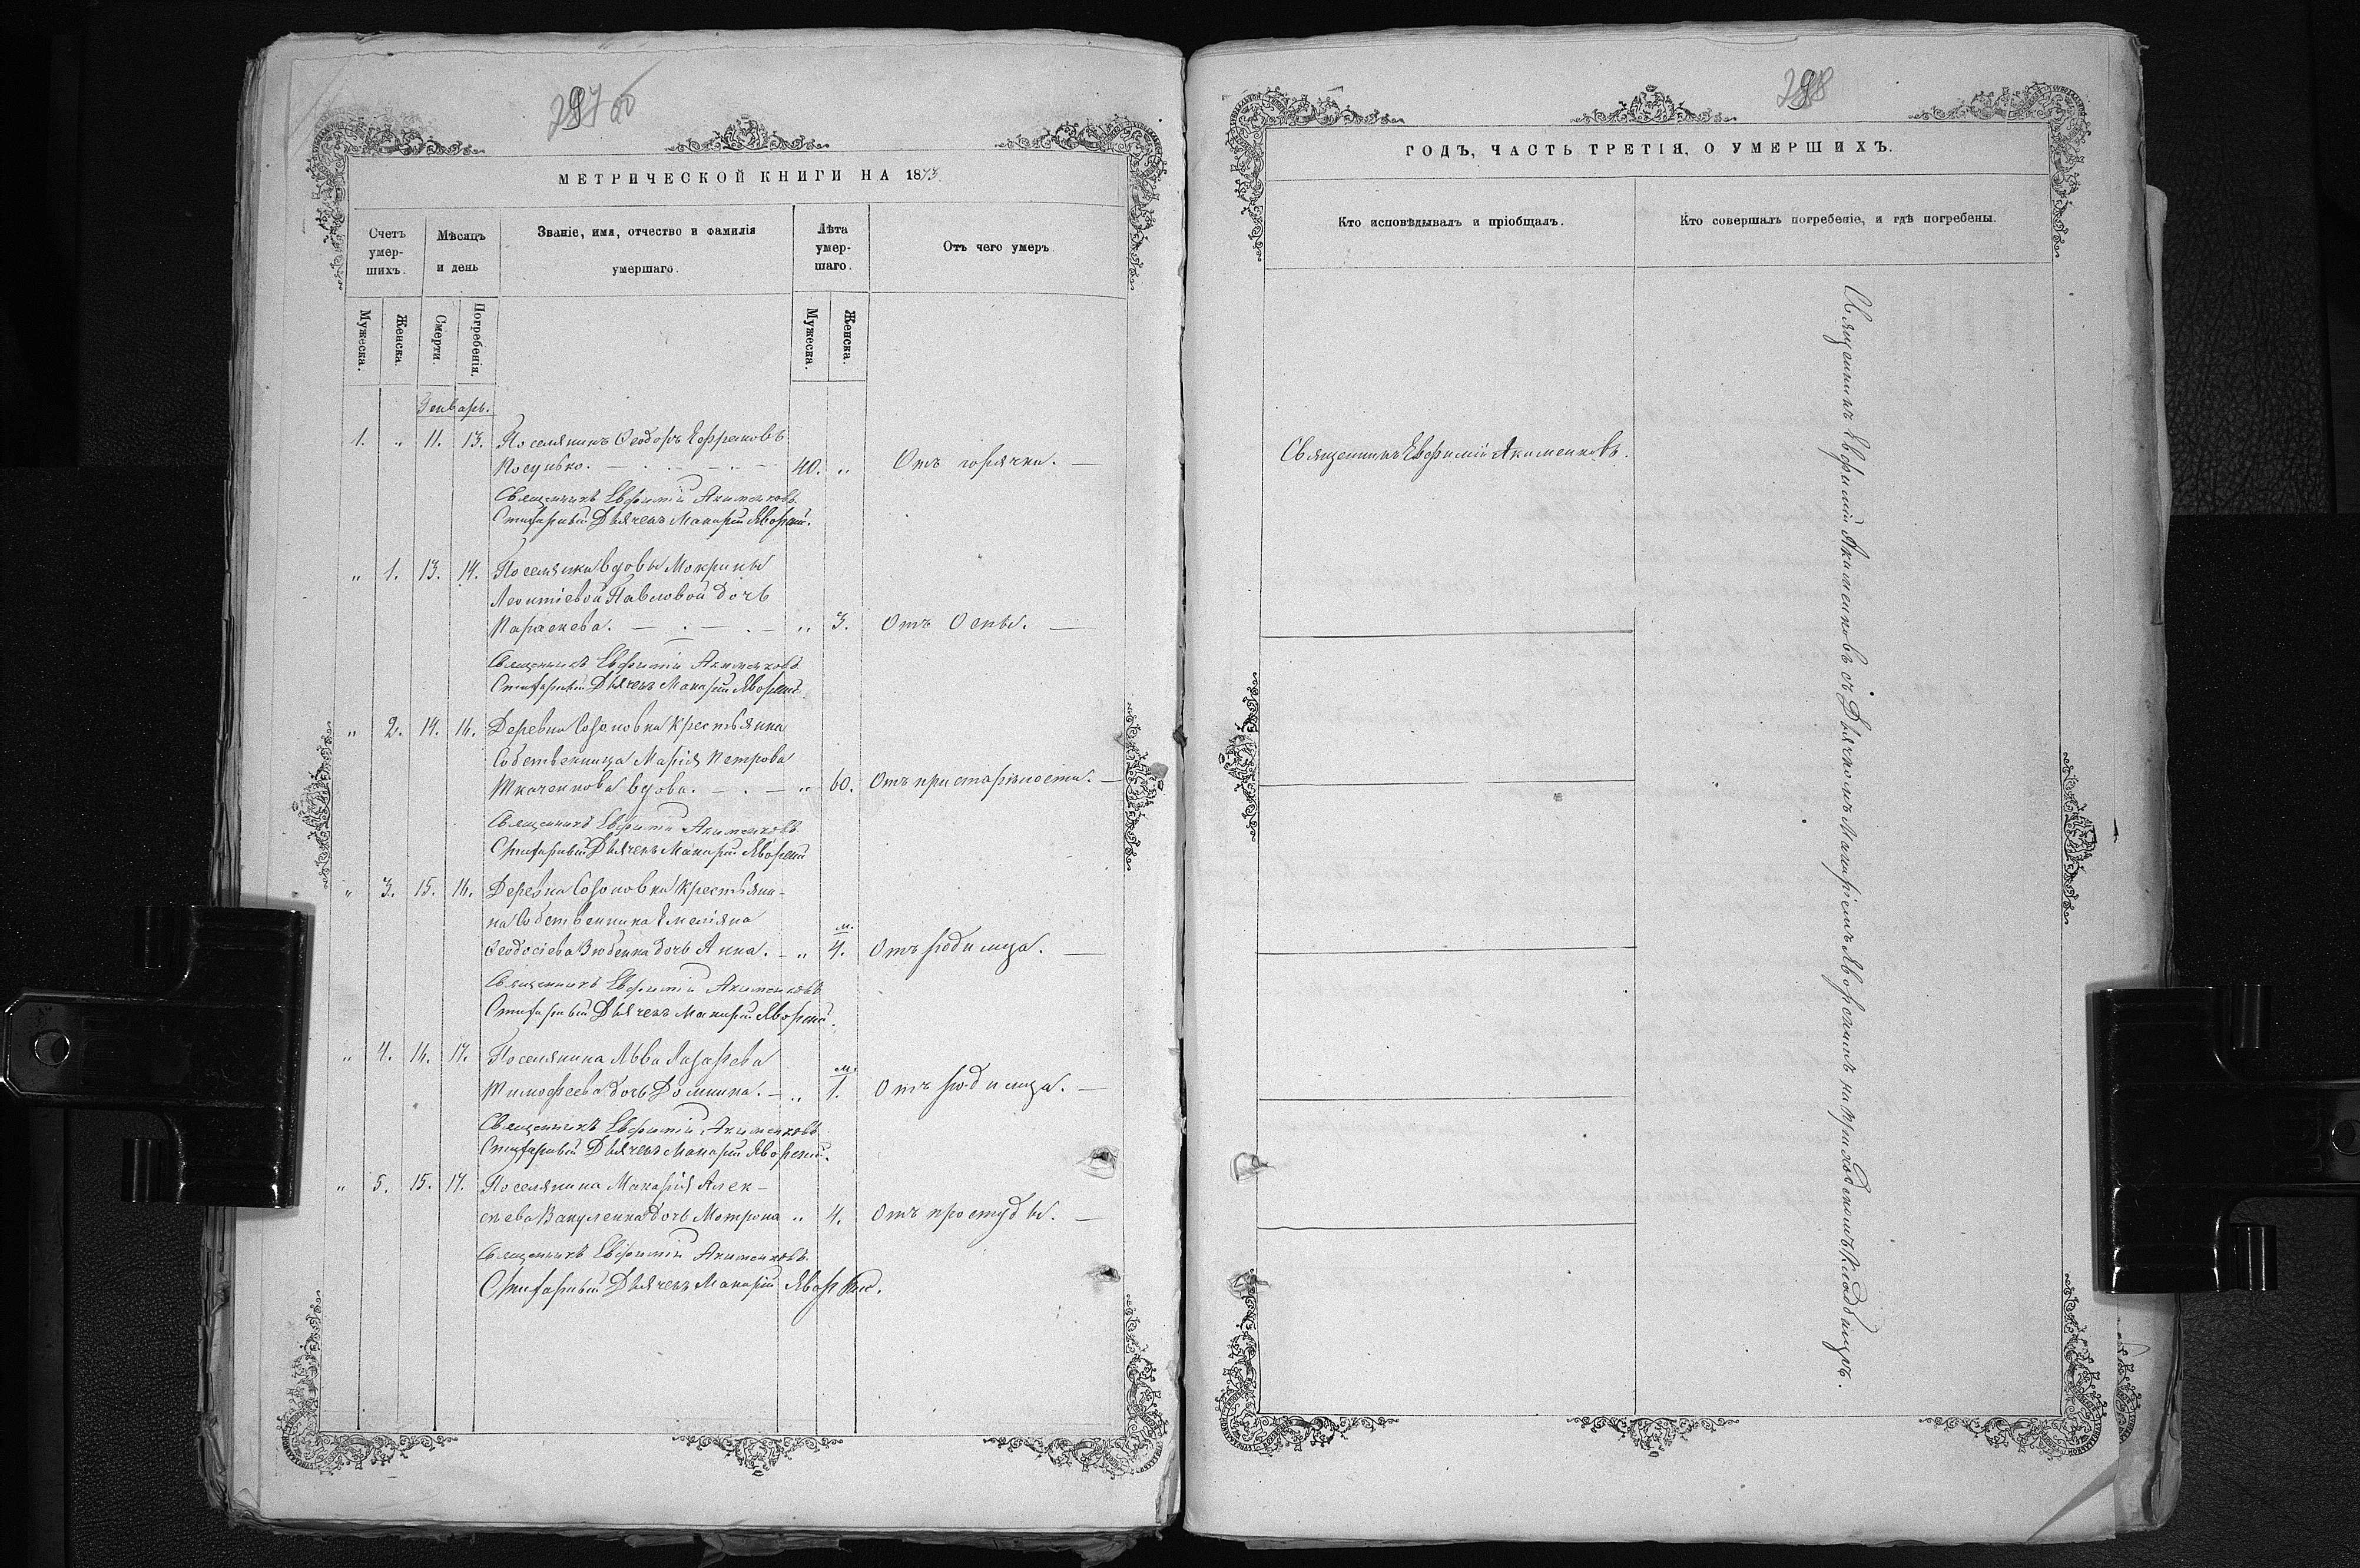 297 об
МЕТРИЧЕСКОЙ КНИГИ НА 1873
Счетъ умер-шихъ.
Мѣсяцъ и день
Званіе, имя, отчество и фамилія умершаго.
Лѣта умер-шаго.
Отъ чего умеръ
Мужеска.
Женска.
Смерти.
Погребенія.
Мужеска.
Женска.
Январь.
1. „ 11. 13. Поселянинъ Ѳеодоръ Ефремовъ
Косунько. 40. „ Отъ горячки.
Священникъ Евфимій Акименковъ
Стихарный Дьячекъ Макарій Яворскій.
„ 1. 13. 14. Поселянки вдовы Мокрины
Леонтіевой Павловой дочь
Параскева. „ 3. Отъ Оспы.
Священникъ Евфимій Акименковъ
Стихарный Дьячекъ Макарій Яворскій.
„ 2. 14. 16. Деревни Созоновки Крестьянка
Собственница Марія Петрова
Ткаченкова вдова. „ 60. Отъ пристарѣлости.
Священникъ Евфимій Акименковъ
Стихарный Дьячекъ Макарій Яворскій
„ 3. 15. 16. Деревни Созоновки Крестьяни-
на Собственника Емеліяна
м.
Ѳеодосіева Зюбенка дочь Анна. „ 4. Отъ родимца.
Священникъ Евфимій Акименковъ
Стихарный Дьячекъ Макарій Яворскій.
„ 4. 16. 17. Поселянина Льва Лазарева
м.
Тимофеева дочь Домника. „ 1. Отъ родимца.
Священникъ Евфимій Акименковъ
Стихарный Дьячекъ Макарій Яворскій.
„ 5. 15. 17. Поселянина Макарія Алек-
сѣева Вакуленка дочь Мотрона „ 4. Отъ простуды.
Священникъ Евфимій Акименковъ.
Стихарный Дьячекъ Макарій Яворскій.
298
ГОДЪ, ЧАСТЬ ТРЕТІЯ, О УМЕРШИХЪ.
Кто исповѣдывалъ и пріобщалъ.
Кто совершалъ погребеніе, и гдѣ погребены.
Священникъ Евфимій Акименковъ.
Священникъ Евфимій Акименковъ съ Дьячкомъ Макаріемъ Яворскимъ на приходскомъ Кладбищѣ.